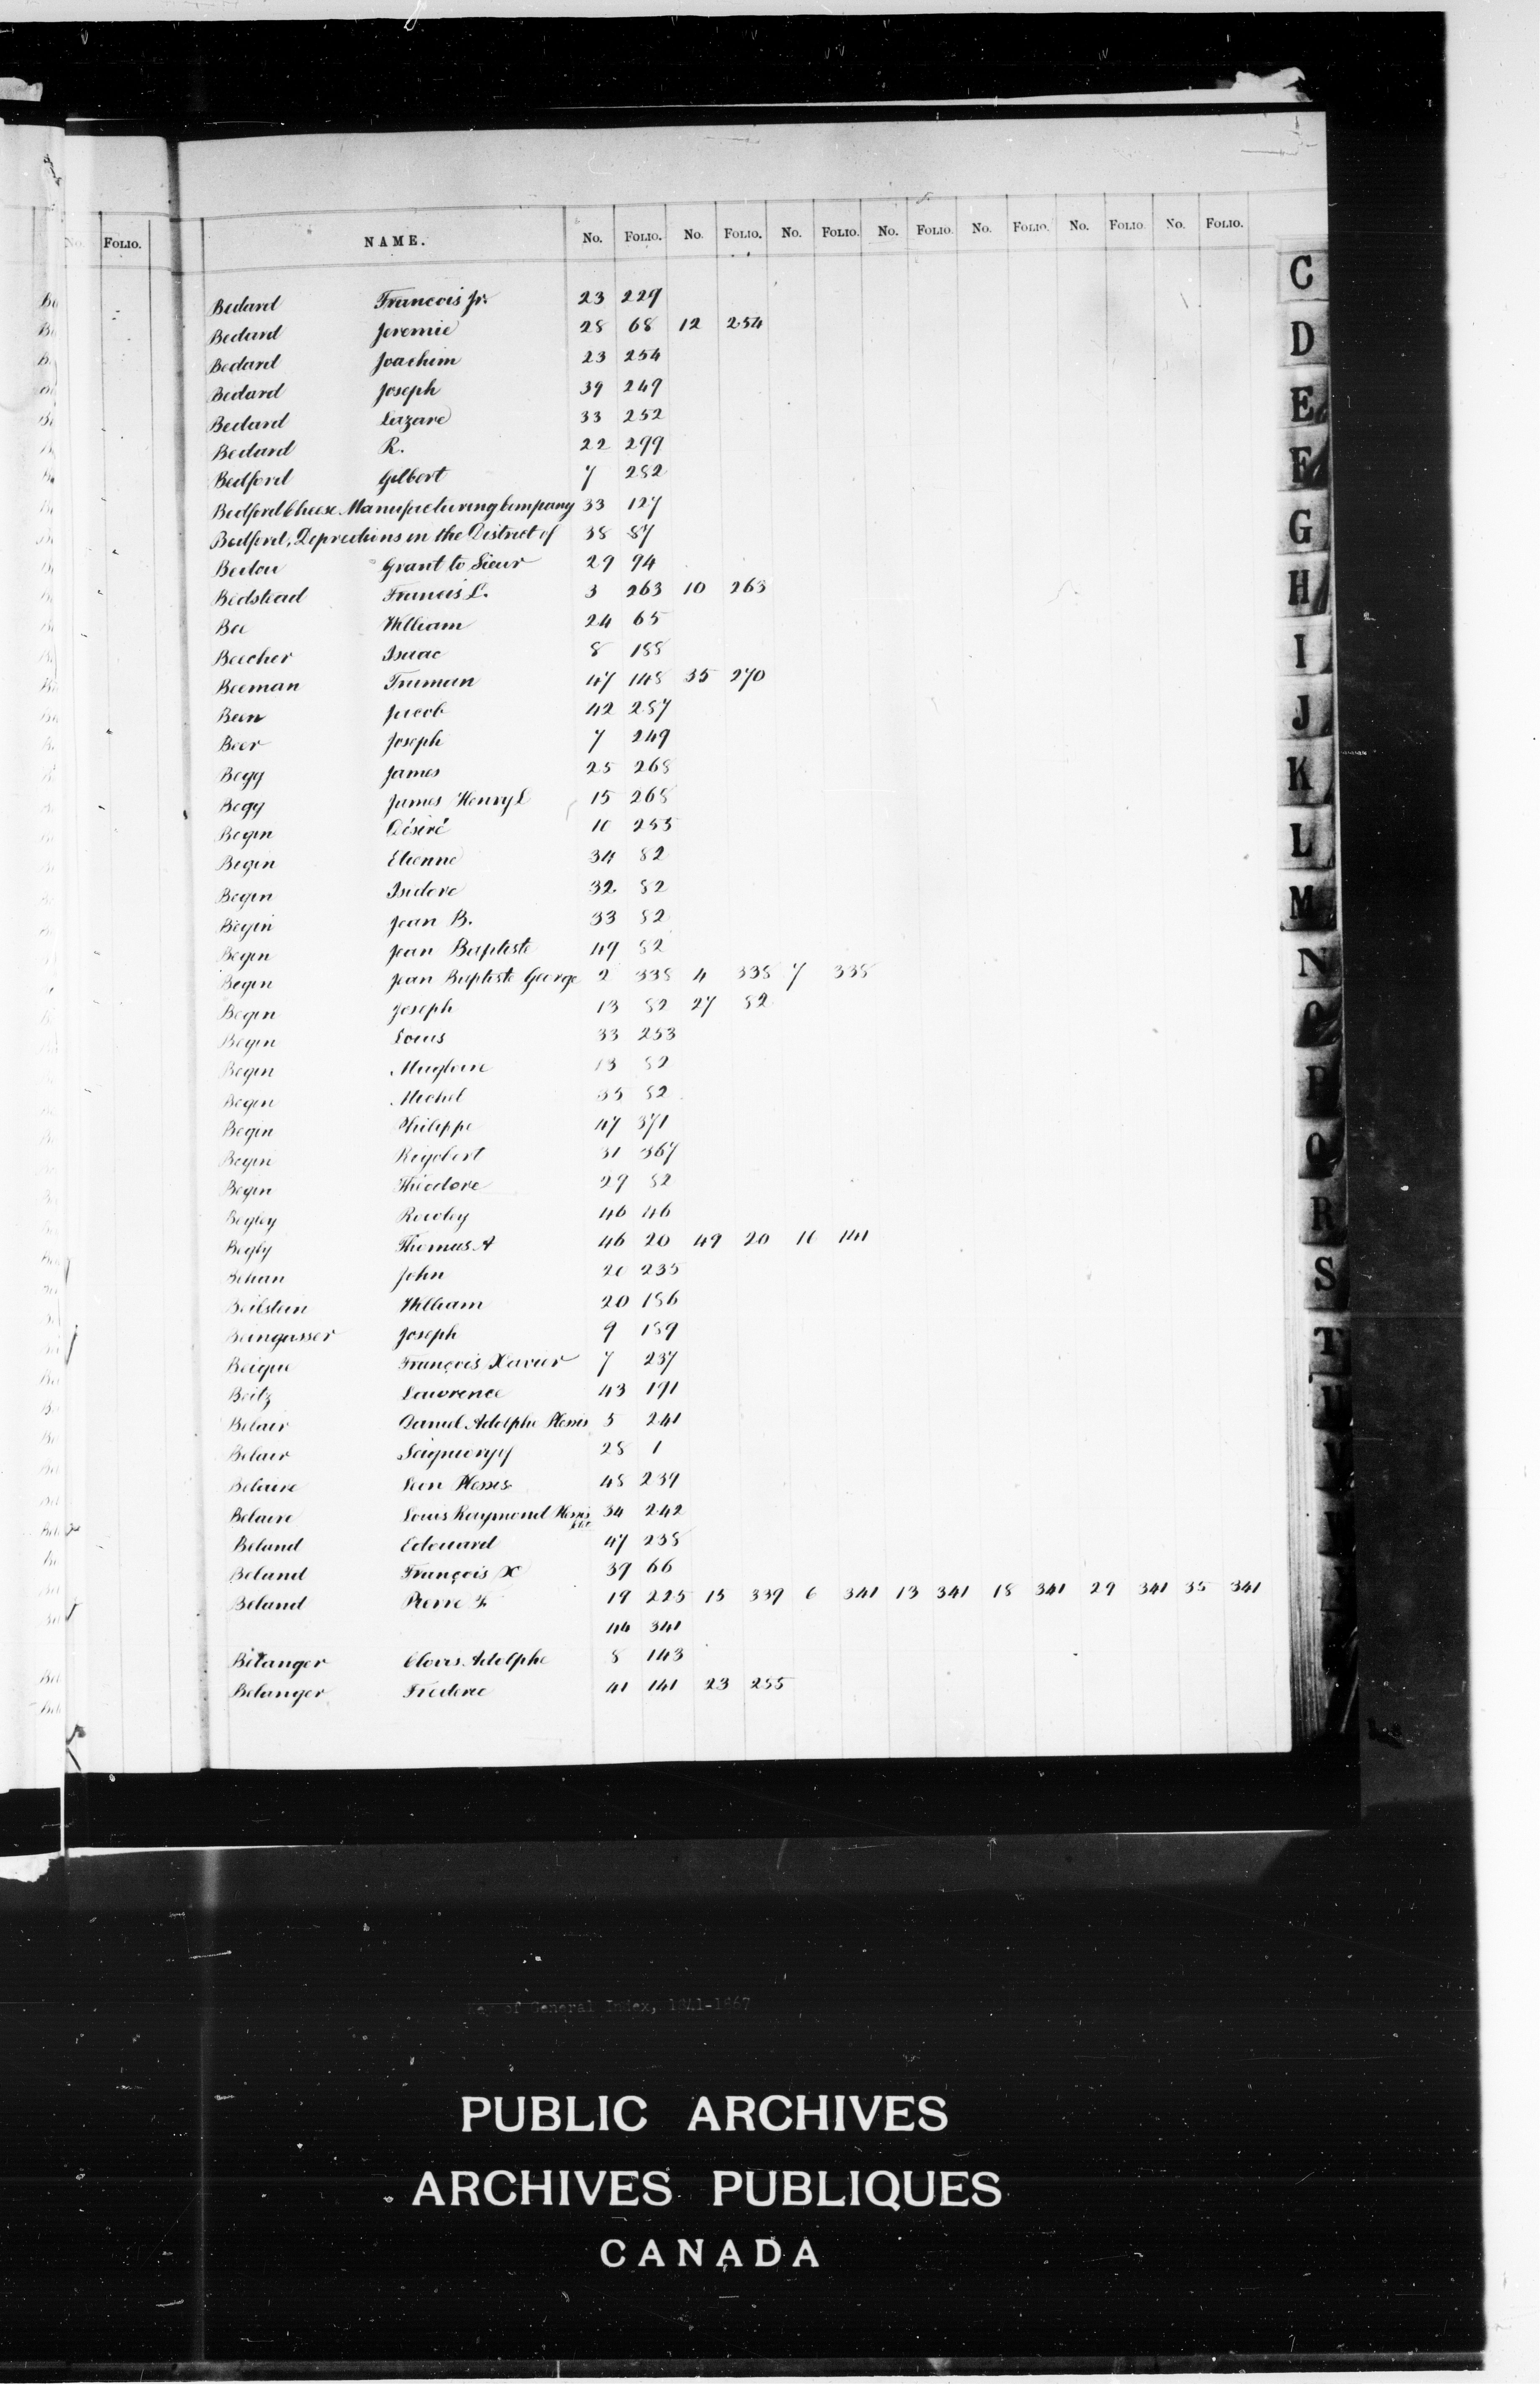 No. FOLIO. NAME. No. FOLIO. No. FOLIO. No. FOLIO. No. FOLIO. No. FOLIO. No. FOLIO. No. FOLIO.
Bedard Francois Jr. 23 229
Bedard Jeremie 28 68 12 254
Bedard Joachim 23 254
Bedard Joseph 39 249
Bedard Lazare 33 252
Bedard R. 22 299
Bedford Gilbert 7 282
Bedford Cheese Manufacturing Company 33 127
Bedford, Depredations in the District of 38 87
Bedou Grant to Sieur 29 94
Bedstead Francis L. 3 263 10 263
Bee William 24 65
Beecher Isaac 8 188
Beeman Truman 47 148 35 270
Been Jacob 42 287
Beer Joseph 7 249
Begg James 25 268
Begg James Henry L 15 268
Begin Désiré 10 255
Begin Etienne 34 82
Begin Isidore 32 82
Begin Jean B. 33 82
Begin Jean Baptiste 49 82
Begin Jean Baptiste George 2 338 4 338 7 338
Begin Joseph 13 82 27 82
Begin Louis 33 253
Begin Magloire 13 82
Begin Michel 35 82
Begin Philippe 47 371
Begin Rigobert 31 367
Begin Théodore 29 82
Begley Rowley 46 46
Begly Thomas A 46 20 49 20 10 141
Behan John 20 235
Beilstein William 20 186
Beingasser Joseph 9 189
Beique François Xavier 7 237
Beitz Lawrence 43 191
Belair Daniel Adolphe Plessis 5 241
Belair Seigniory of 28 1
Belaire Plessis 48 239
Belaire Louis Raymond Plessis dit 34 242
Beland Edouard 47 238
Beland François X 39 66
Beland Pierre F. 19 225 15 339 6 341 13 341 18 341 29 341 35 341
44 341
Belanger Clovis Adolphe 8 143
Belanger Frederic 41 141 23 255
C
D
E
F
G
H
I
J
K
L
M
N
O
P
Q
R
S
T
U
V
W
Key of General Index, 1841-1867
PUBLIC ARCHIVES
ARCHIVES PUBLIQUES
CANADA